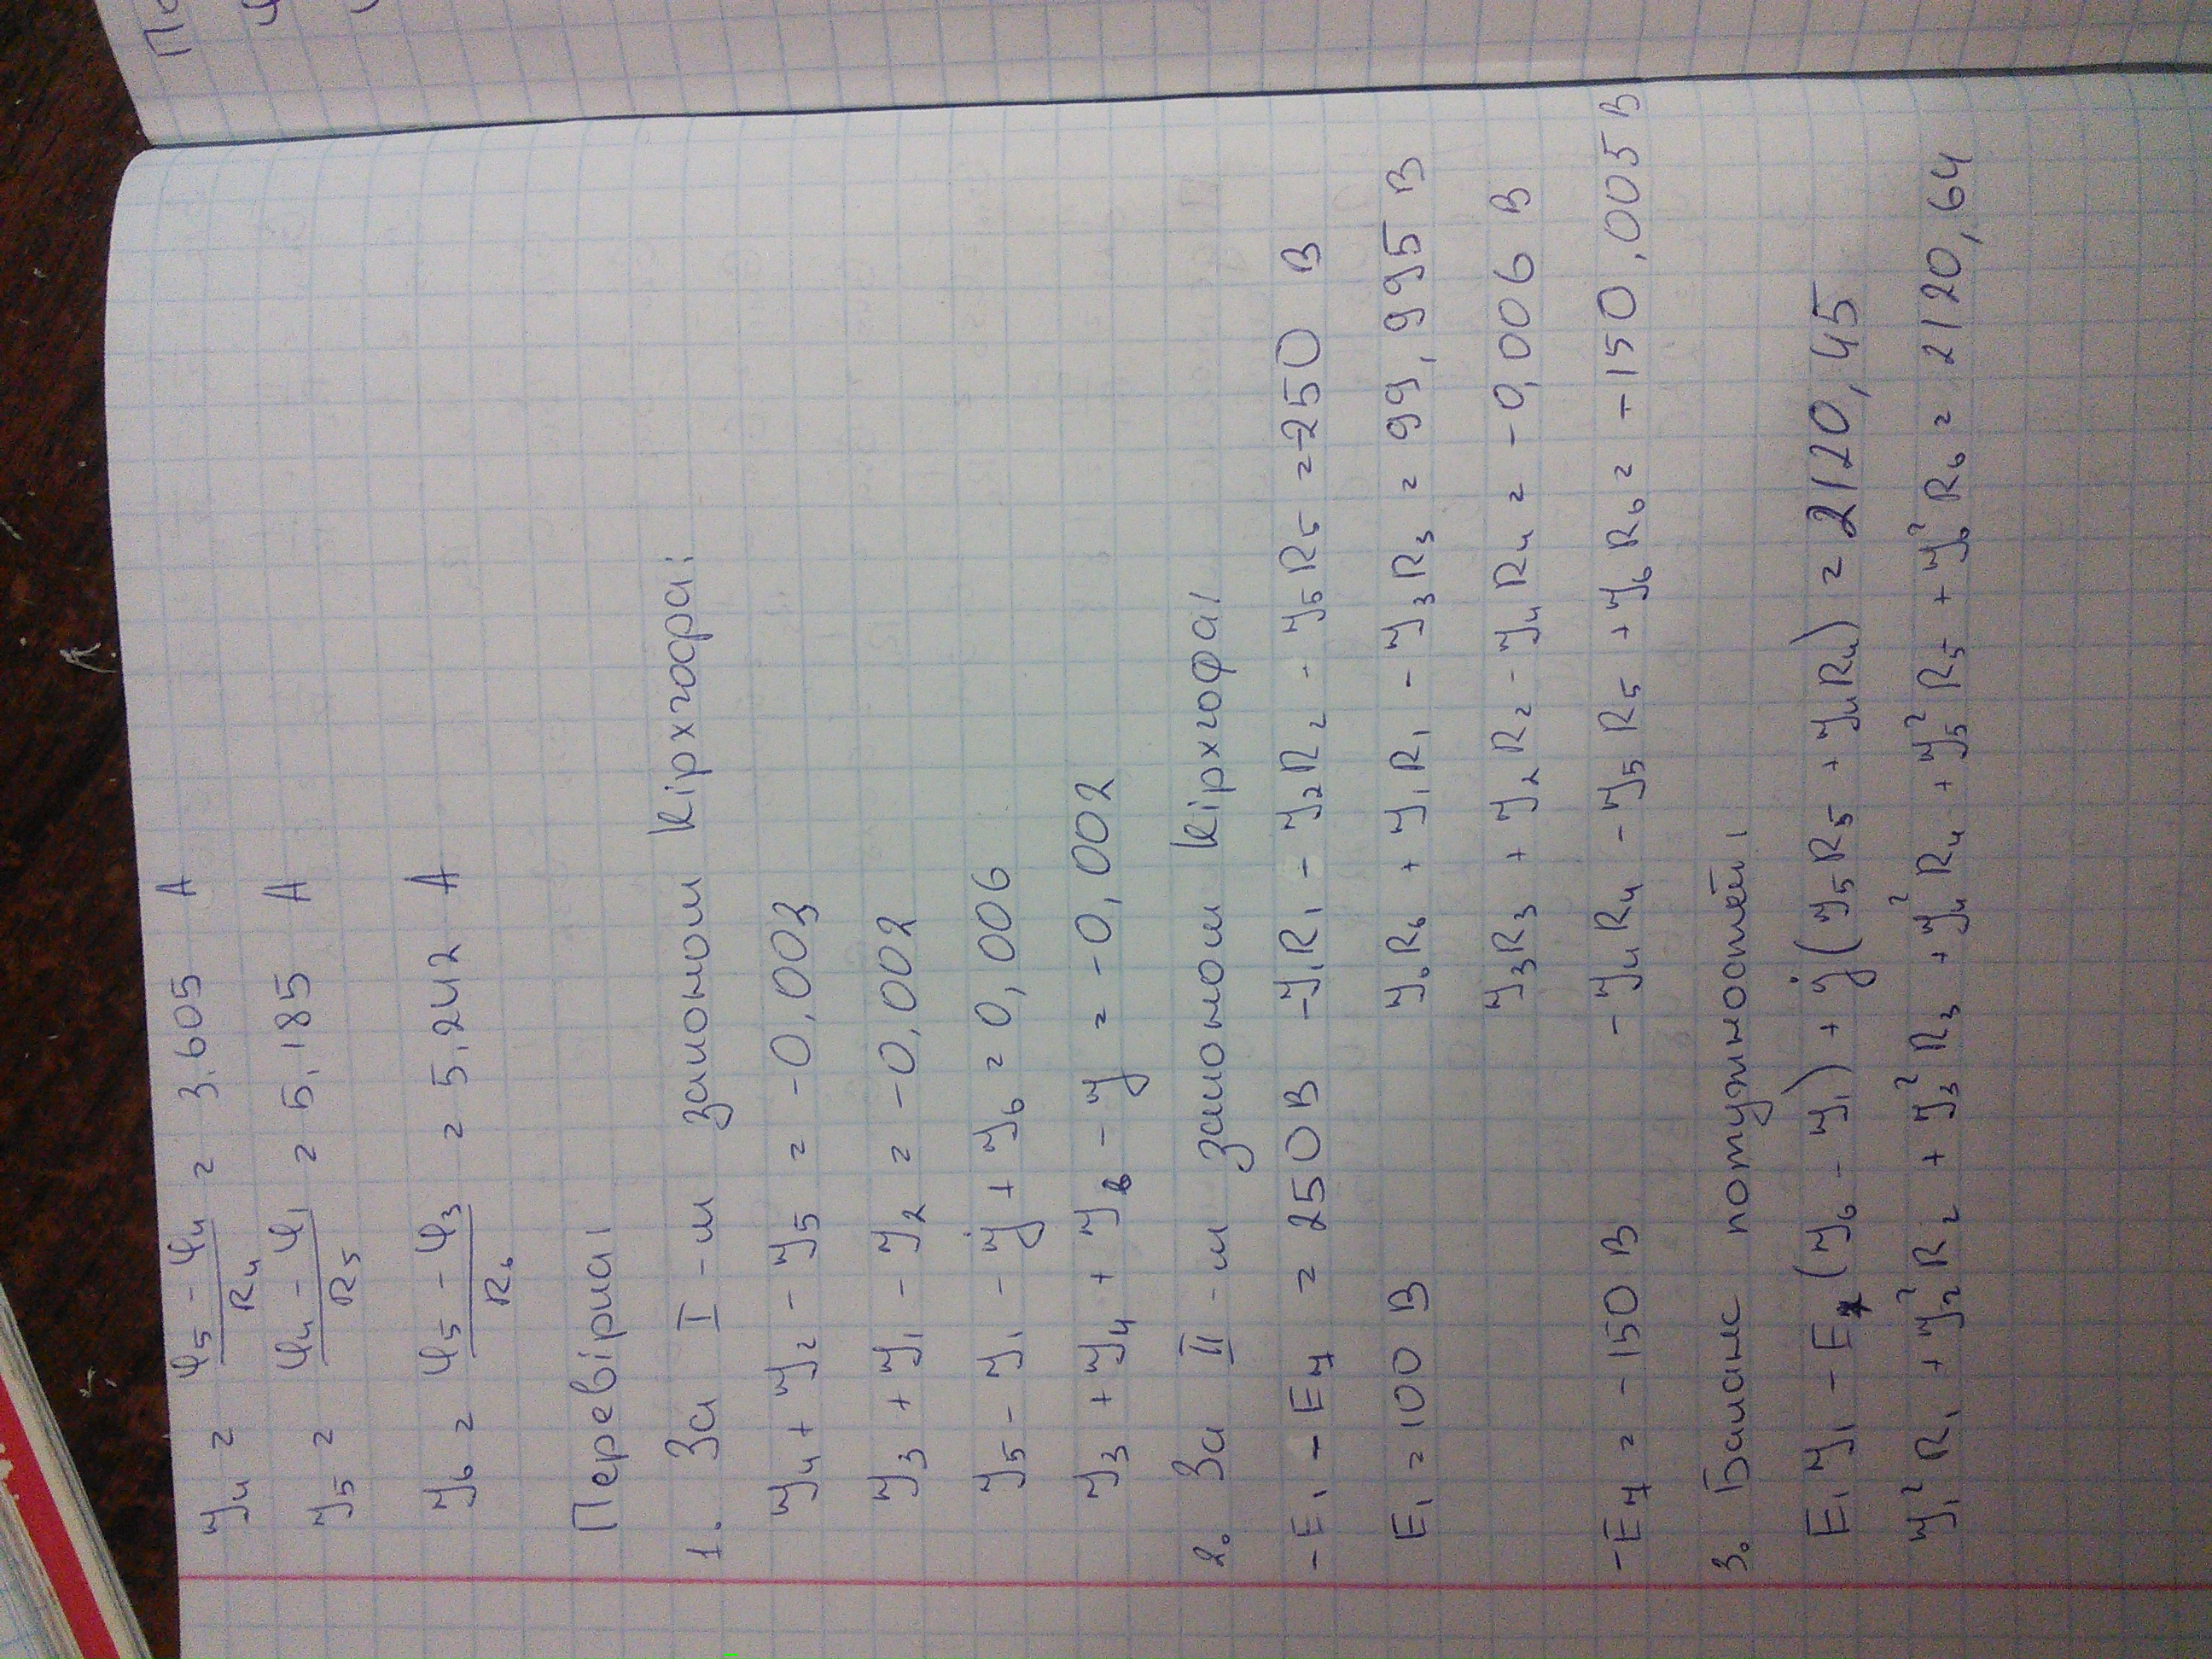 У₄ = (φ₅ - φ₄)/R₄ = 3,605 А
У₅ = (φ₄ - φ₁)/R₅ = 5,185 А
У₆ = (φ₅ - φ₃)/R₆ = 5,242 А
Перевірка:
1. За I-м законом Кірхгофа:
У₄ + У₂ - У₅ = -0,003
У₃ + У₁ - У₂ = -0,002
У₅ - У₁ - У + У₆ = 0,006
У₃ + У₄ + У₆ - У = -0,002
2. За II-м законом Кірхгофа:
-E₁ - E₇ = 250 В -У₁R₁ - У₂R₂ - У₅R₅ = -250 В
E₁ = 100 В У₆R₆ + У₁R₁ - У₃R₃ = 99,995 В
У₃R₃ + У₂R₂ - У₄R₄ = -0,006 В
-E₇ = -150 В -У₄R₄ - У₅R₅ + У₆R₆ = -150,005 В
3. Баланс потужностей:
E₁У₁ - E₇(У₆ - У₁) + У(У₅R₅ + У₄R₄) = 2120,45
У₁²R₁ + У₂²R₂ + У₃²R₃ + У₄²R₄ + У₅²R₅ + У₆²R₆ = 2120,64